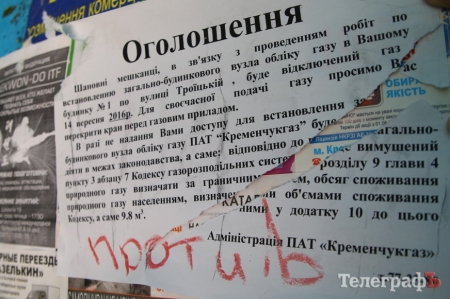 Оголошення
Шановні мешканці, в зв'язку з проведенням робіт по
встановленню загально-будинкового вузла обліку газу в Вашому
будинку №1 по вулиці Троїцькій, буде відключений газ
14 вересня 2016р. Для своєчасної подачі газу просимо Вас
перекрити кран перед газовим приладом.
В разі не надання Вами доступу для встановлення
будинкового вузла обліку газу ПАТ «Кременчукгаз» буде
загально-
діяти в межах законодавства, а саме: відповідно до
вимушений
пункту 3 абзацу 7 Кодексу газорозподільних
розділу 9 глави 4
природного газу визначати за граничними
обсяг споживання
природного газу населенням,
об'ємами споживання
Кодексу, а саме 9.8 м³.
у додатку 10 до цього
Адміністрація ПАТ «Кременчукгаз»
КАТА
м.
ОБИРА
ЯКІСТЬ
KWON-DO ITF
против
Телеграфъ